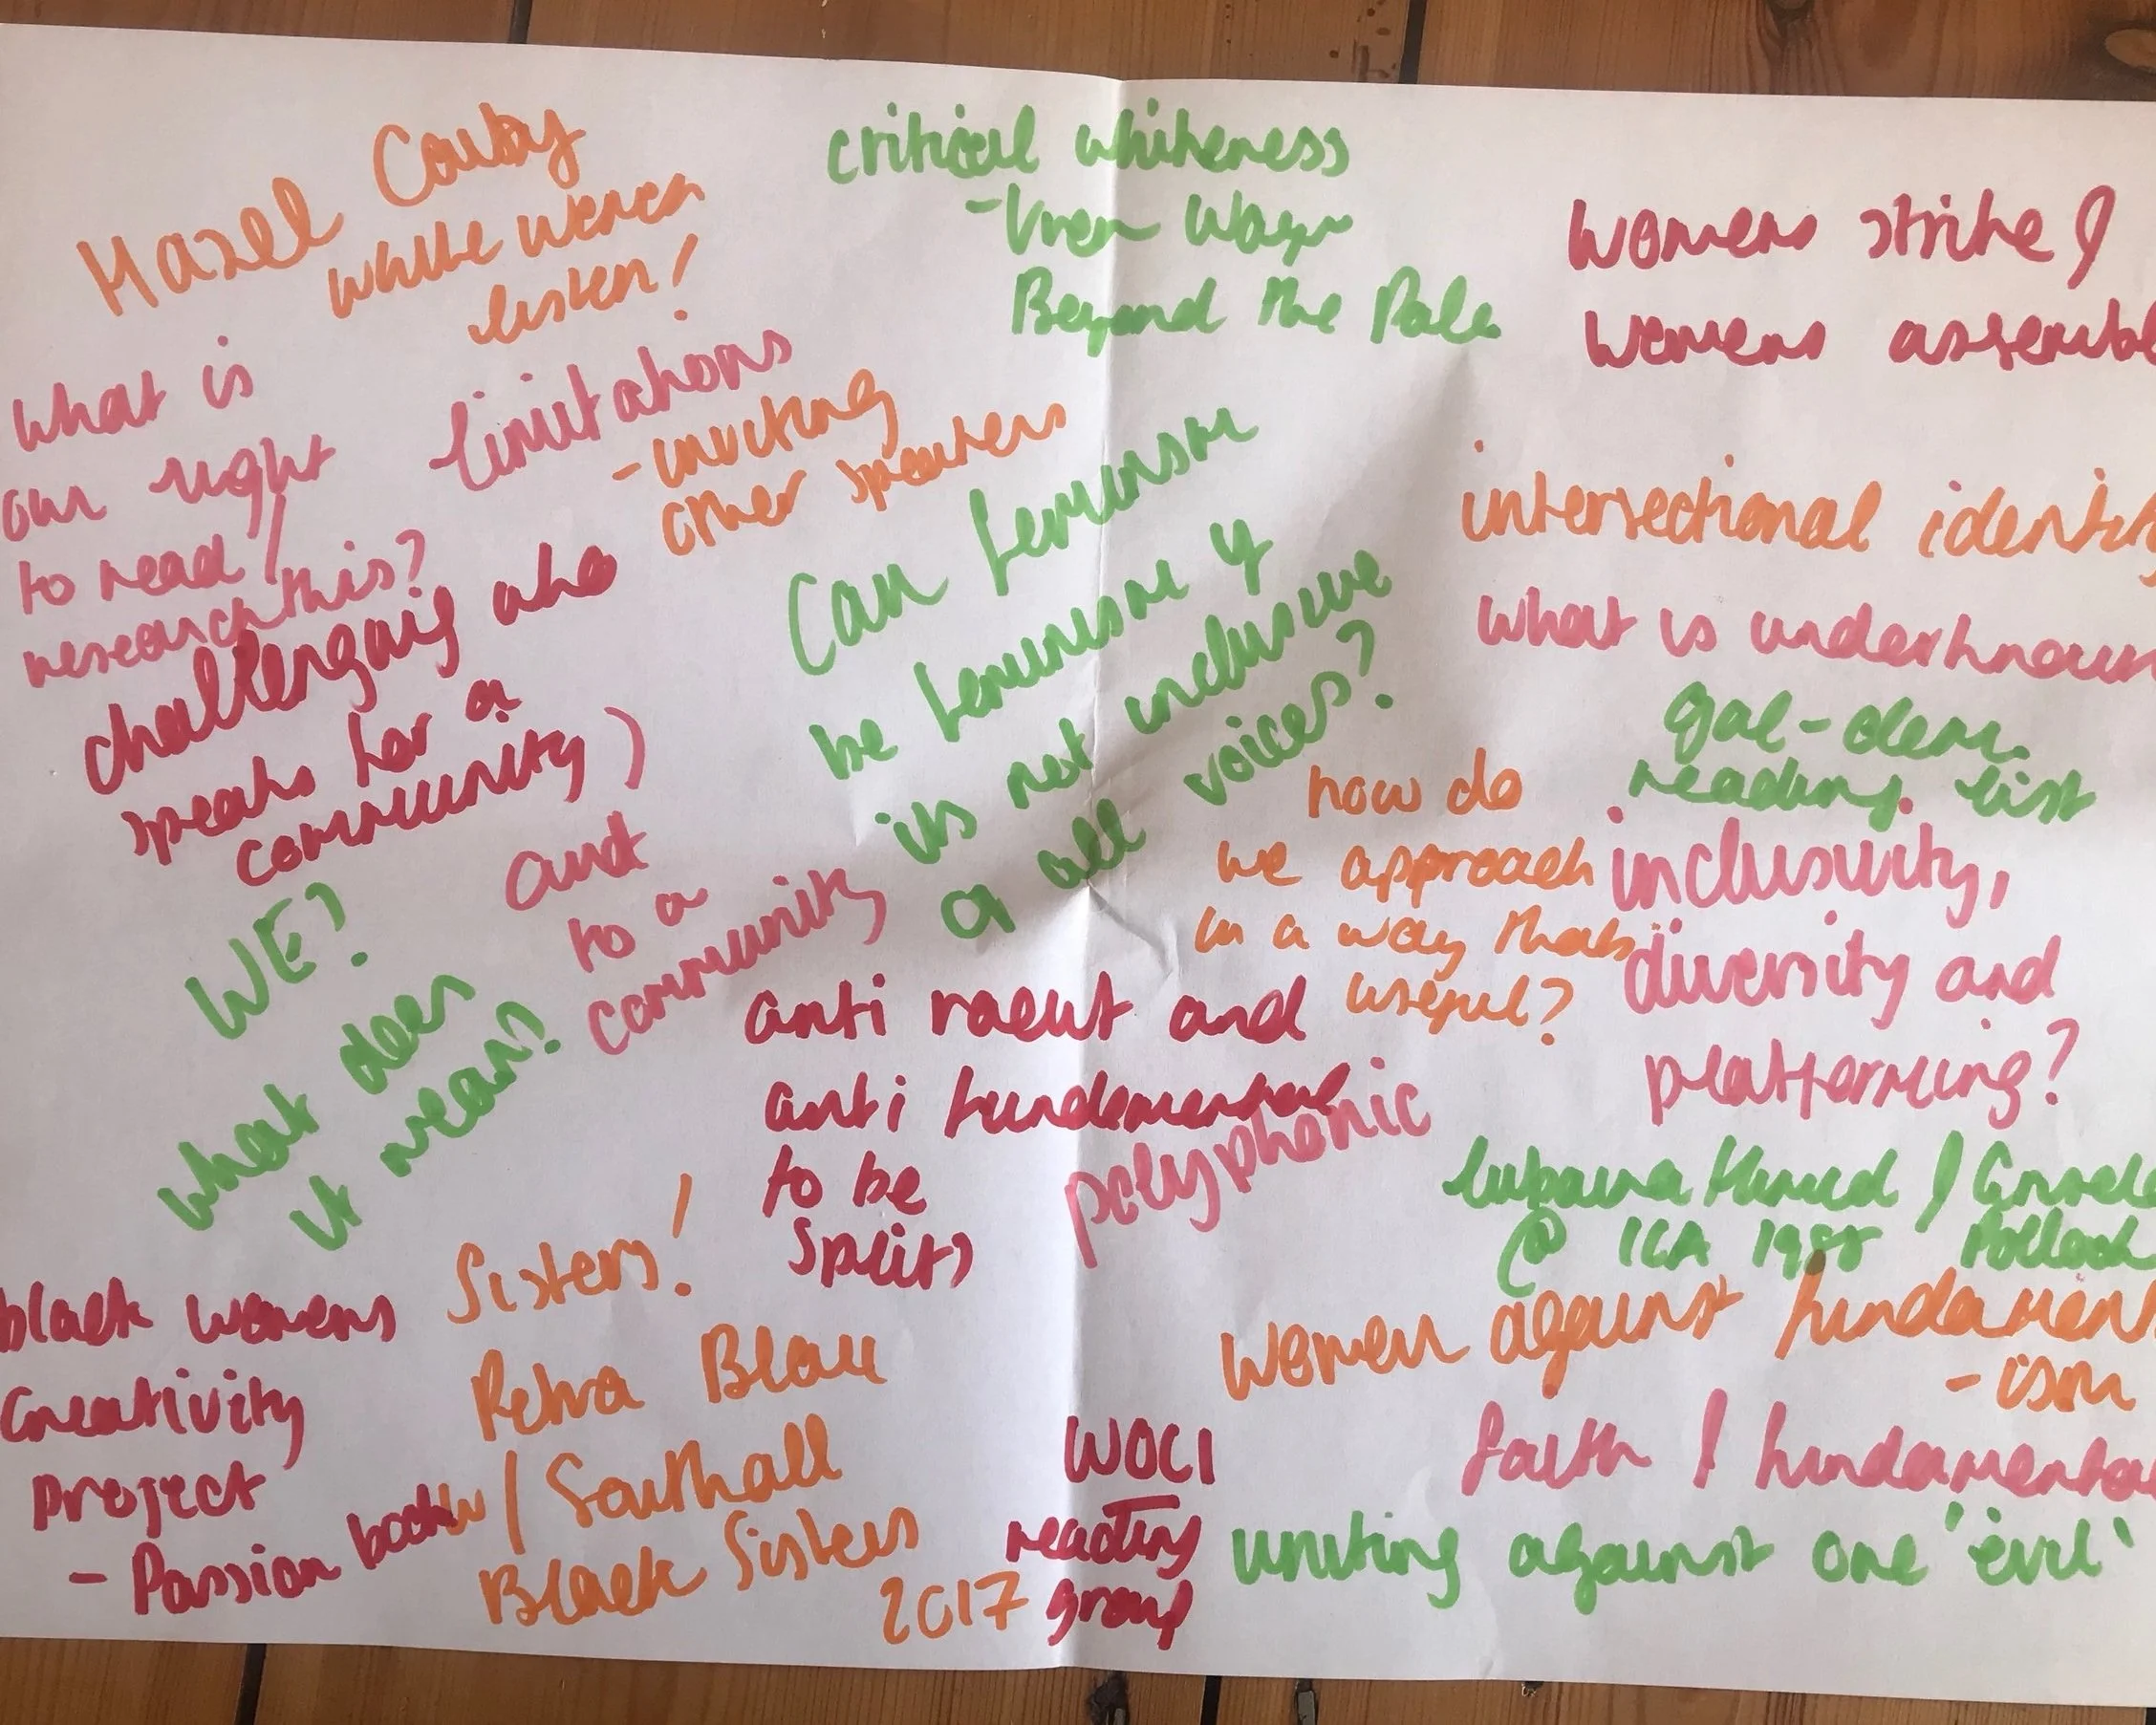 Hazel Carby
white women
listen!
critical whiteness
- Vron Ware
Beyond the Pale
womens strike /
womens assemb
what is
our right
to read /
research this?
limitations
- inviting
other speakers
challenging who
speaks for a
community)
and
to a
community
Can feminism
be feminism if
its not inclusive
of all voices?
intersectional identity
what is underknown
gal-dem.
reading list
how do
we approach
in a way thats
useful?
inclusivity,
diversity and
platforming?
WE?
what does
it mean?
anti racist and
anti fundamental
to be
split)
polyphonic
lubaina Himid / Grisel
@ ICA 1988 Pollock
women against fundament
- ism
faith / fundamenta
uniting against one 'evil'
black womens
Creativity
project
- Passion books
Sisters!
/ Southall
Black Sisters
2017
WOCI
reading
group